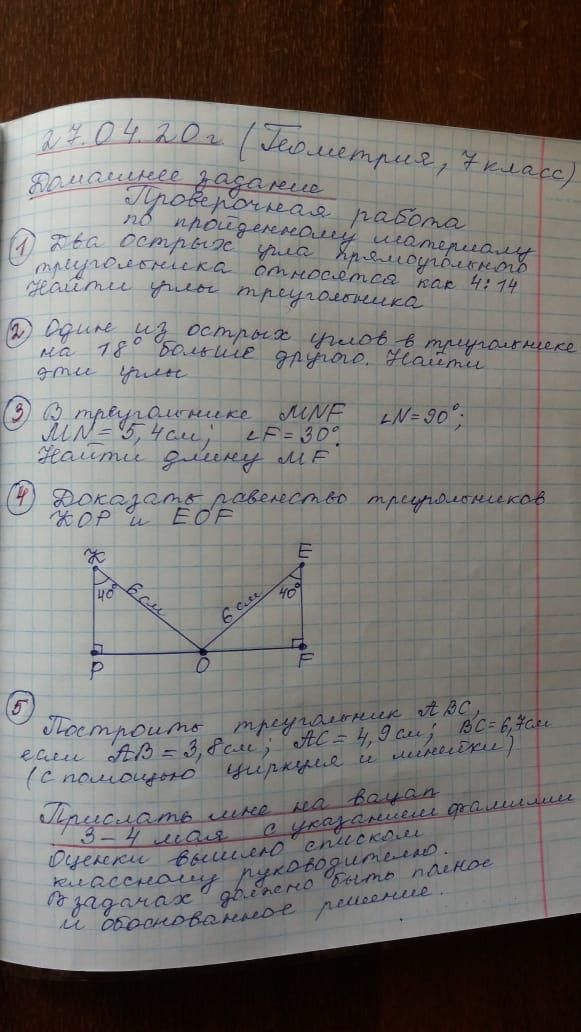 27.04.20г. (Геометрия, 7 класс)
Домашнее задание
Проверочная работа
по пройденному материалу
① Два острых угла прямоугольного
треугольника относятся как 4:14
Найти углы треугольника
② Один из острых углов в треугольнике
на 18° больше другого. Найти
эти углы
③ В треугольнике MNF ∠N=90°;
MN=5,4см; ∠F=30°.
Найти длину MF
④ Доказать равенство треугольников
KOP и EOF
K E
40° 6 см 6 см 40°
P O F
⑤ Построить треугольник ABC,
если AB=3,8см; AC=4,9см; BC=6,7см
(с помощью циркуля и линейки)
Прислать мне на вацап
3–4 мая с указанием фамилии
Оценки вышлю списком
классному руководителю.
В задачах должно быть полное
и обоснованное решение.